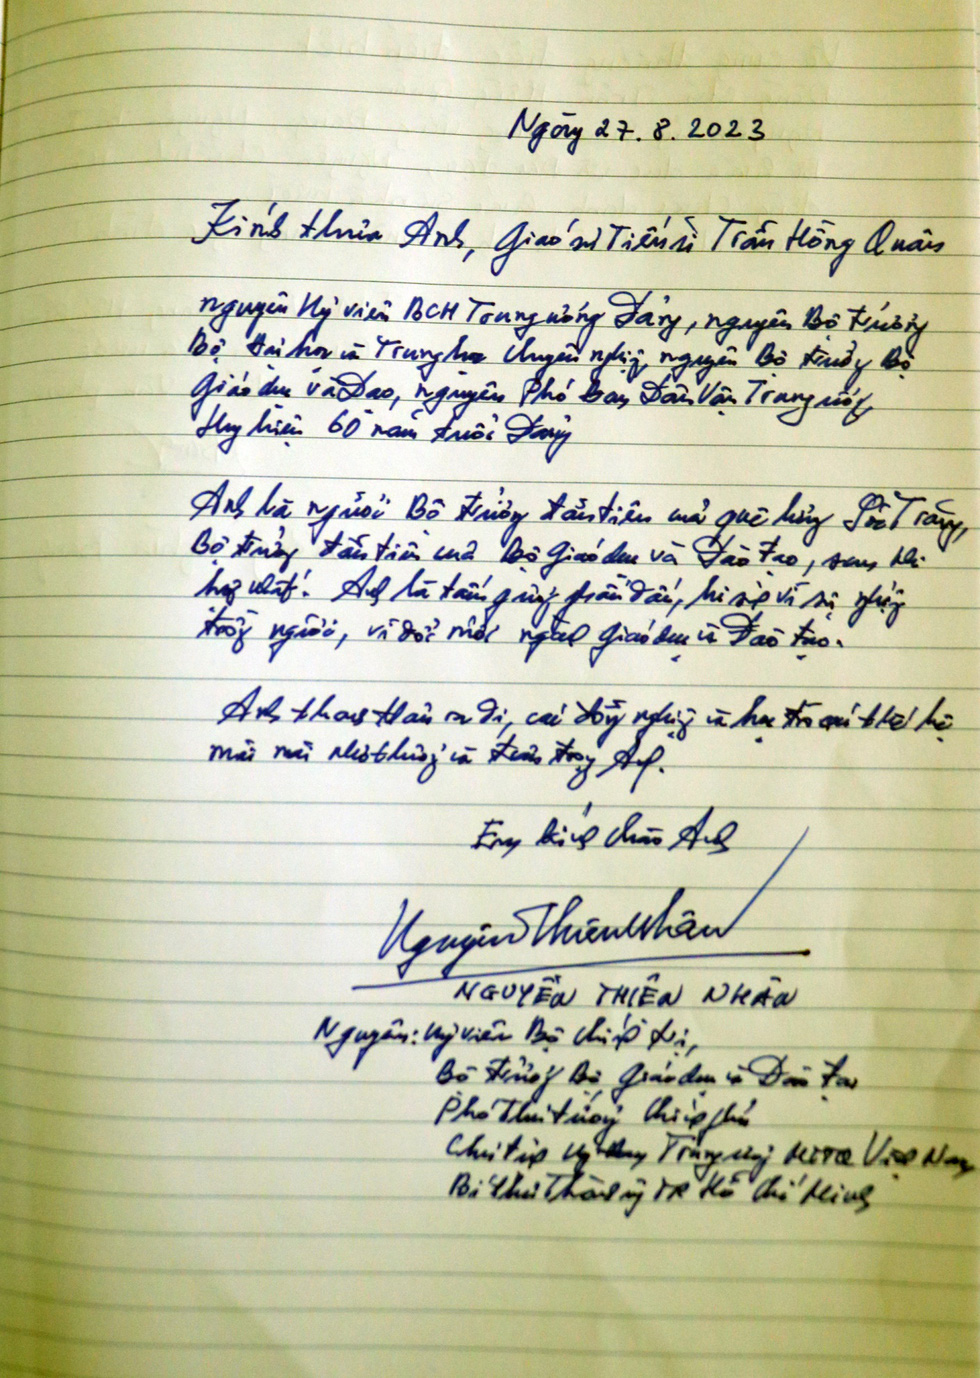 Ngày 27.8.2023
Kính thưa Anh, Giáo sư Tiến sĩ Trần Hồng Quân
nguyên Uỷ viên BCH Trung ương Đảng, nguyên Bộ trưởng
Bộ Đại học và Trung học chuyên nghiệp, nguyên Bộ trưởng Bộ
Giáo dục và Đào, nguyên Phó ban Dân Vận Trung ương
Huy hiệu 60 năm tuổi Đảng
Anh là người Bộ trưởng đầu tiên của quê hương Sóc Trăng,
Bộ trưởng đầu tiên của Bộ Giáo dục và Đào tạo, sau khi
hợp nhất. Anh là tấm gương phấn đấu, vì sự nghiệp
trồng người, vì đổi mới ngành Giáo dục và Đào tạo.
Anh thanh thản ra đi, các đồng nghiệp và học trò các thế hệ
mãi mãi nhớ thương và trân trọng Anh.
Em kính chào Anh
Nguyễn Thiện Nhân
NGUYỄN THIỆN NHÂN
Nguyên: Uỷ viên Bộ Chính trị,
Bộ trưởng Bộ Giáo dục và Đào tạo
Phó Thủ tướng Chính phủ
Chủ tịch Uỷ ban Trung ương MTTQ Việt Nam
Bí thư Thành ủy TP Hồ Chí Minh